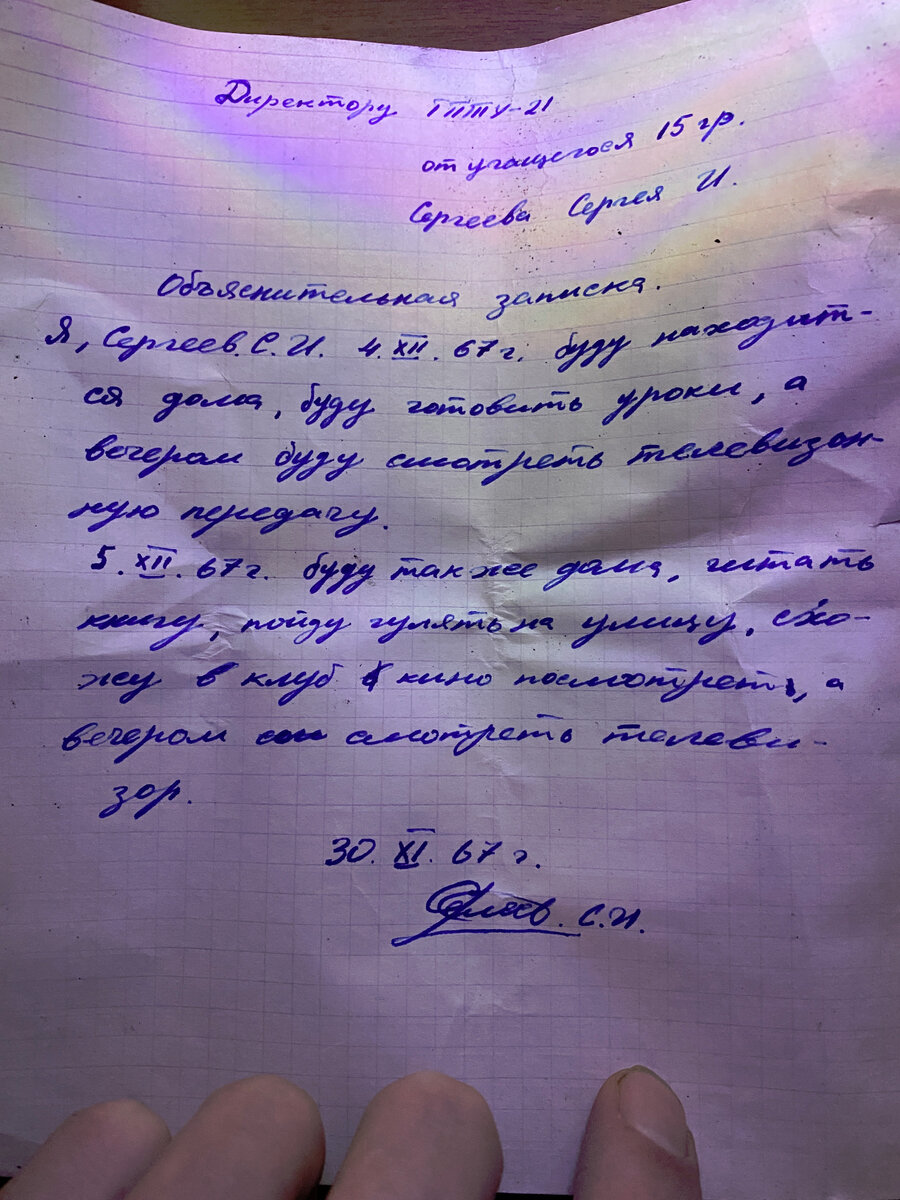 Директору ГПТУ-21
от учащегося 15 гр.
Сергеева Сергея И.
Объяснительная записка.
Я, Сергеев. С. И. 4. XII. 67 г. буду находит-
ся дома, буду готовить уроки, а
вечером буду смотреть телевизон-
ную передачу.
5. XII. 67 г. буду также дома, читать
книгу, пойду гулять на улицу, схо-
жу в клуб кино посмотреть, а
вечером смотреть телеви-
зор.
30. XI. 67 г.
С. И.